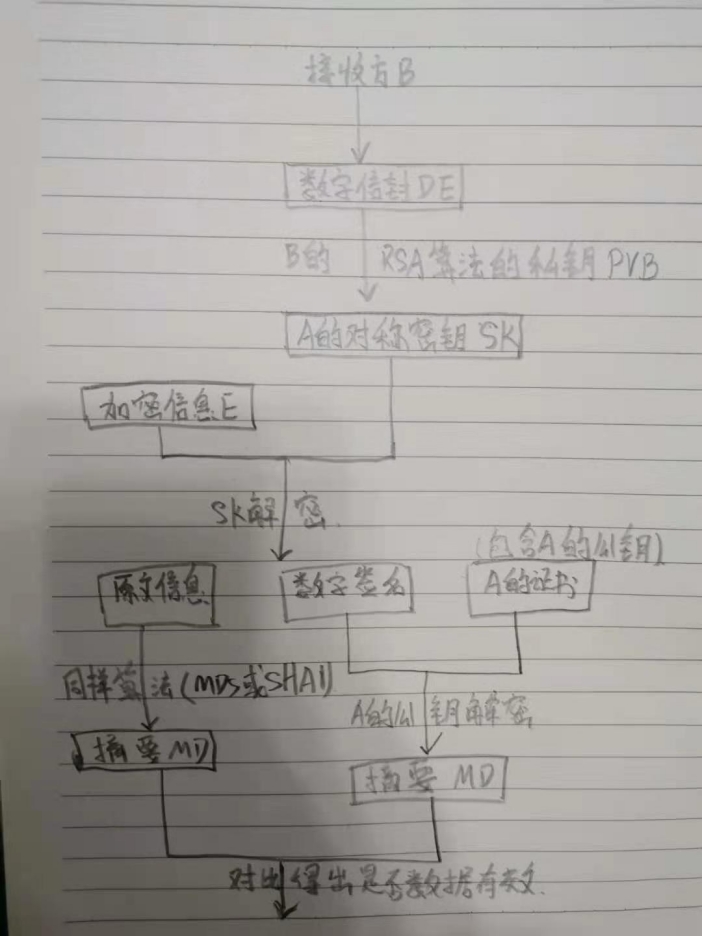 接收方B
数字信封DE
B的 RSA算法的私钥PVB
A的对称密钥SK
加密信息E
SK解密
(包含A的公钥)
原文信息 数字签名 A的证书
同样算法(MD5或SHA1)
A的公钥解密
摘要MD
摘要MD
对比得出是否数据有效.